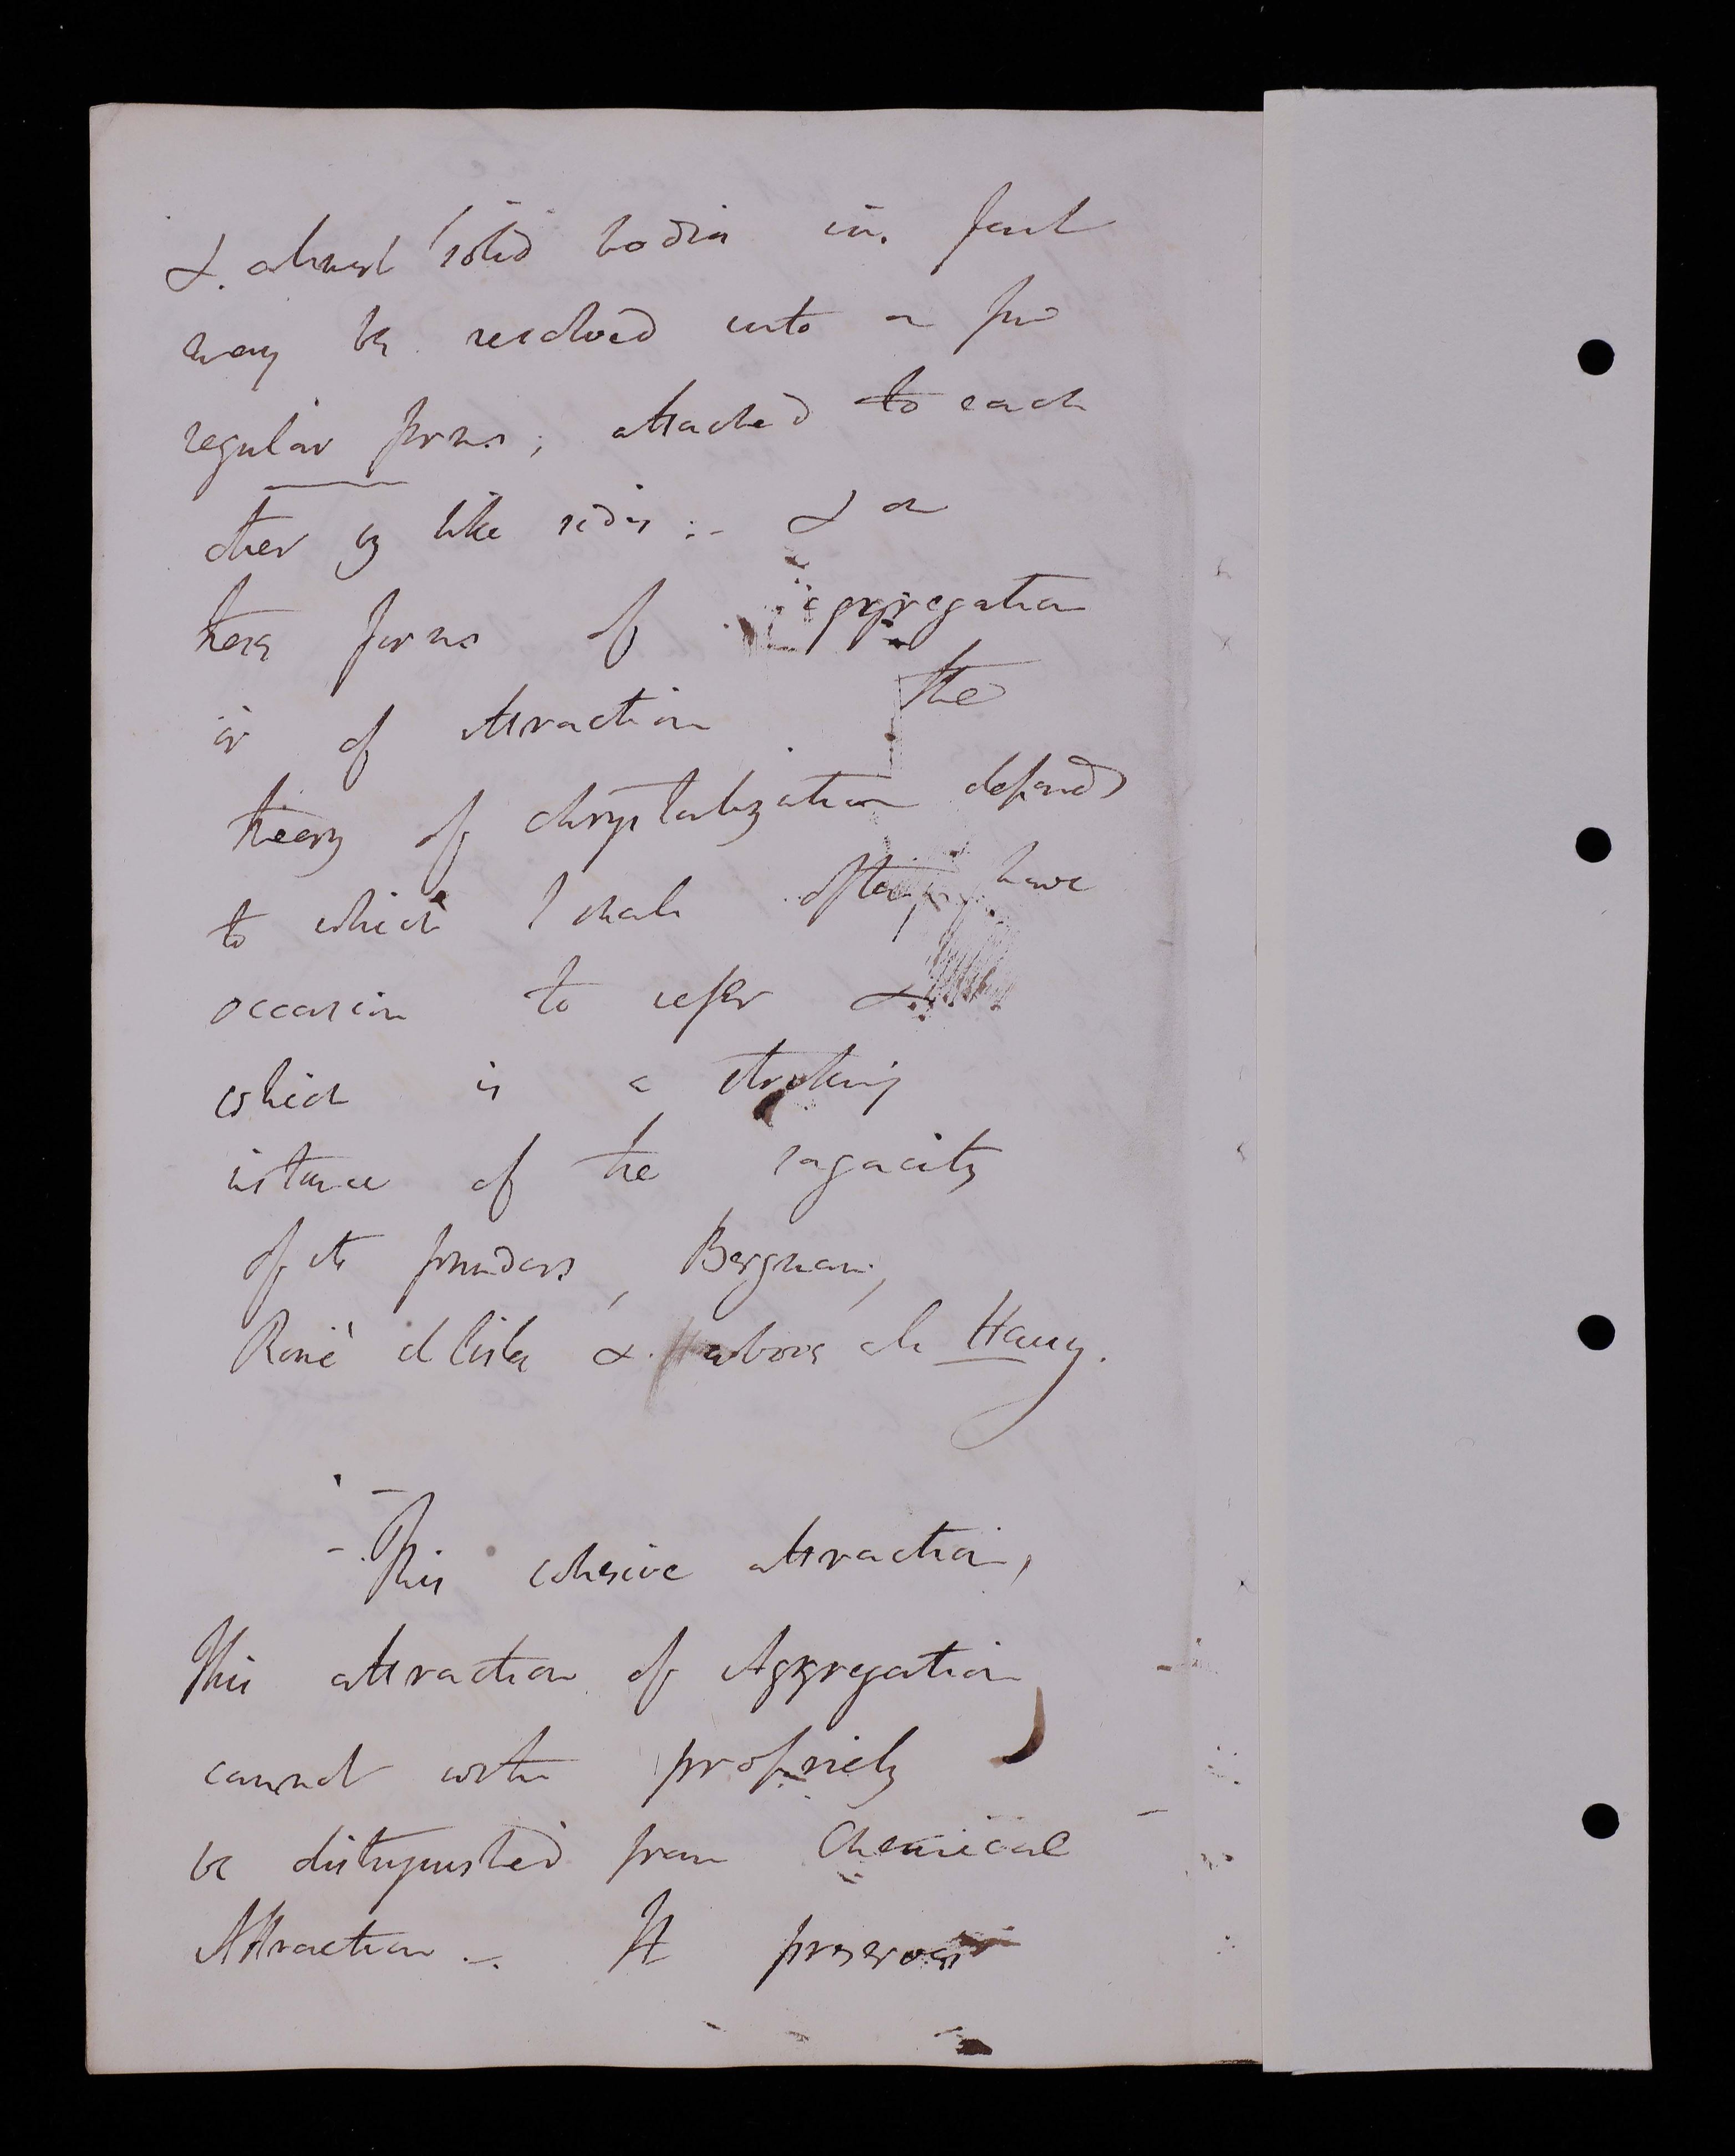 & almost solid bodies in fact
may be resolved into a few
regular forms; attached to each
other by like sides:- & on
these forms of aggregation
is of attraction the
theory of chrystalization depends
to which I shall often have
occasion to refer &
which is a striking
istance of the sagacity
of its founders, Bergman,
Romé d lisle & above all Hauy.
- This cohesive attraction,
this attraction of Aggregation
cannot with propriety
be distinguished from Chemical
Attraction -. It preserves